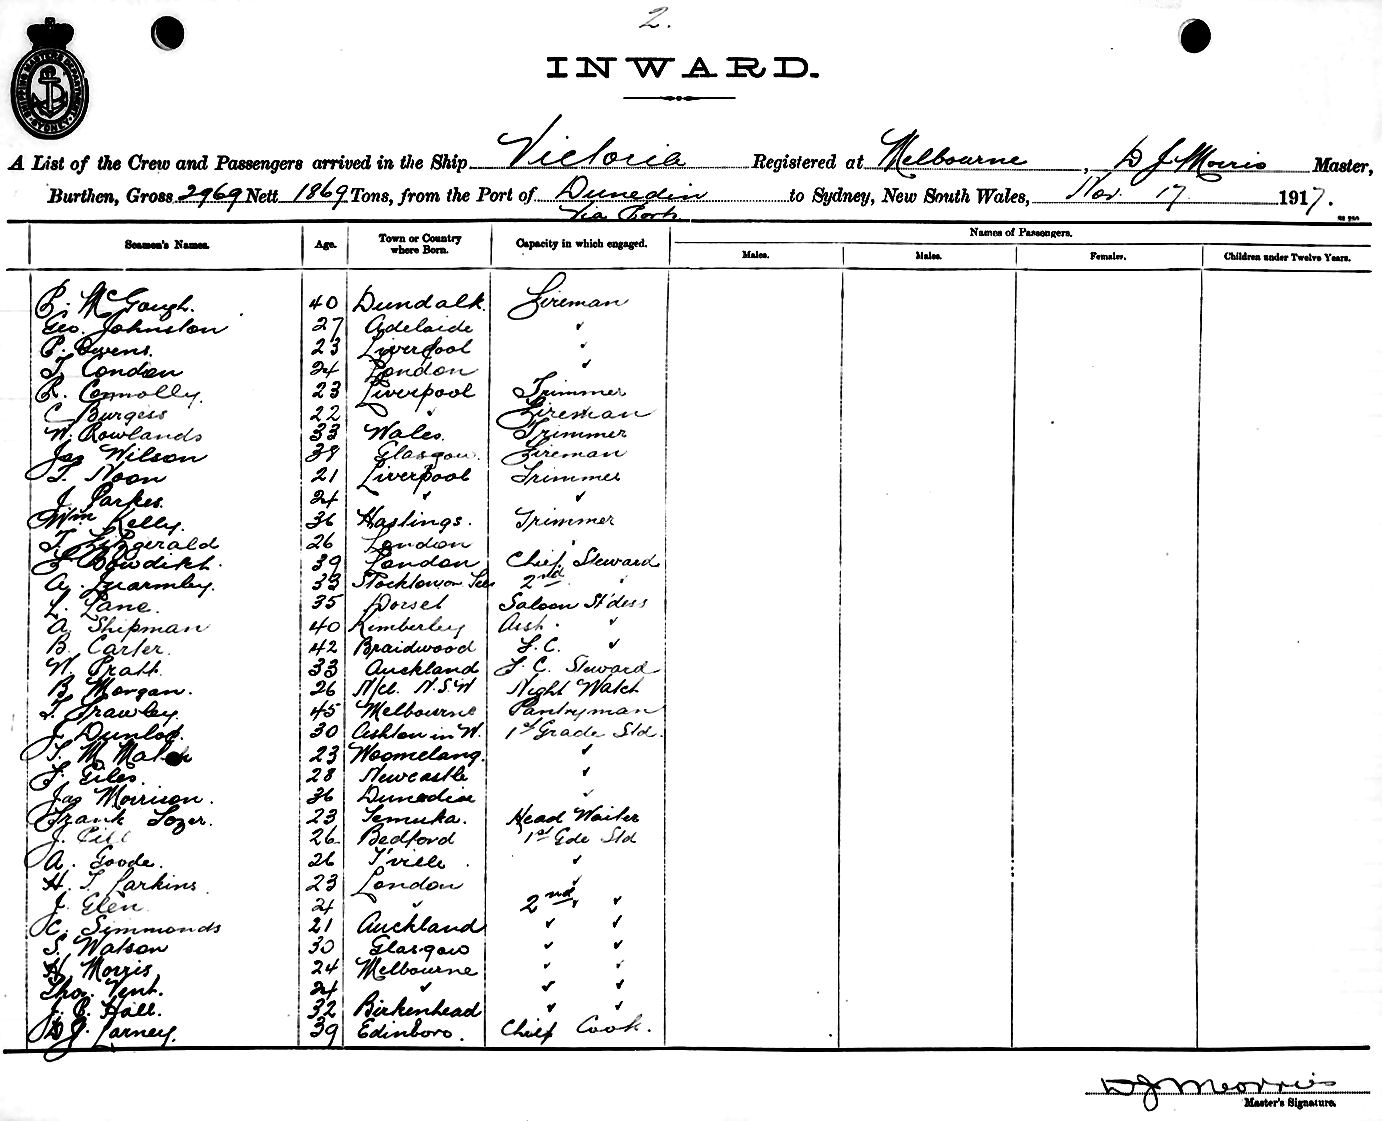 2.
INWARD.
A List of the Crew and Passengers arrived in the Ship Victoria Registered at Melbourne, D J Morris Master,
Burthen, Gross 2969 Nett 1869 Tons, from the Port of Dunedin to Sydney, New South Wales, Nov 17 1917.
Via Ports
Names of Passengers.
Seamen's Names. Age. Town or Country where Born. Capacity in which engaged. Males. Males. Females. Children under Twelve Years.
P. McGough. 40 Dundalk. Fireman
Geo. Johnston 27 Adelaide "
P. Owens. 23 Liverpool "
T. Condon 24 London "
R. Connolly. 23 Liverpool Trimmer
C Burgess 22 " Fireman
W. Rowlands 33 Wales. Trimmer
Jas Wilson 38 Glasgow. Fireman
T. Noon 21 Liverpool Trimmer
J. Parkes. 24 " "
Wm Kelly. 36 Hastings. Trimmer
T. Fitzgerald 26 London "
Bowditch. 39 London Chief Steward
A. Quarmley. 33 Stockton on Tees 2nd "
L. Lane. 35 Dorset Saloon St'dess
A Shipman 40 Kimberley Asst. "
B. Carter. 42 Braidwood F.C. "
W. Pratt. 33 Auckland F.C. Steward
B Morgan. 26 N/cl. N.S.W Night Watch
T. Frawley. 45 Melbourne Pantryman
J. Dunlop. 30 Ashton in W. 1st Grade Std.
T. Mc 23 Woomelang. "
F. Giles. 28 Newcastle "
Jas Morrison. 36 Dunedin "
Frank Tozer. 23 Temuka. Head Waiter
J. 26 Bedford 1st Gde Std
A. Goode. 26 T'ville. "
H. T. Parkins 23 London "
J. Glen 24 " 2nd "
C. Simmonds 21 Auckland " "
S. Watson 30 Glasgow " "
H Morris 24 Melbourne " "
Thos. Vent. 24 " " "
J. P. Hall. 32 Birkenhead " "
D J. Carney. 39 Edinboro. Chief Cook.
D J Morris
Master's Signature.